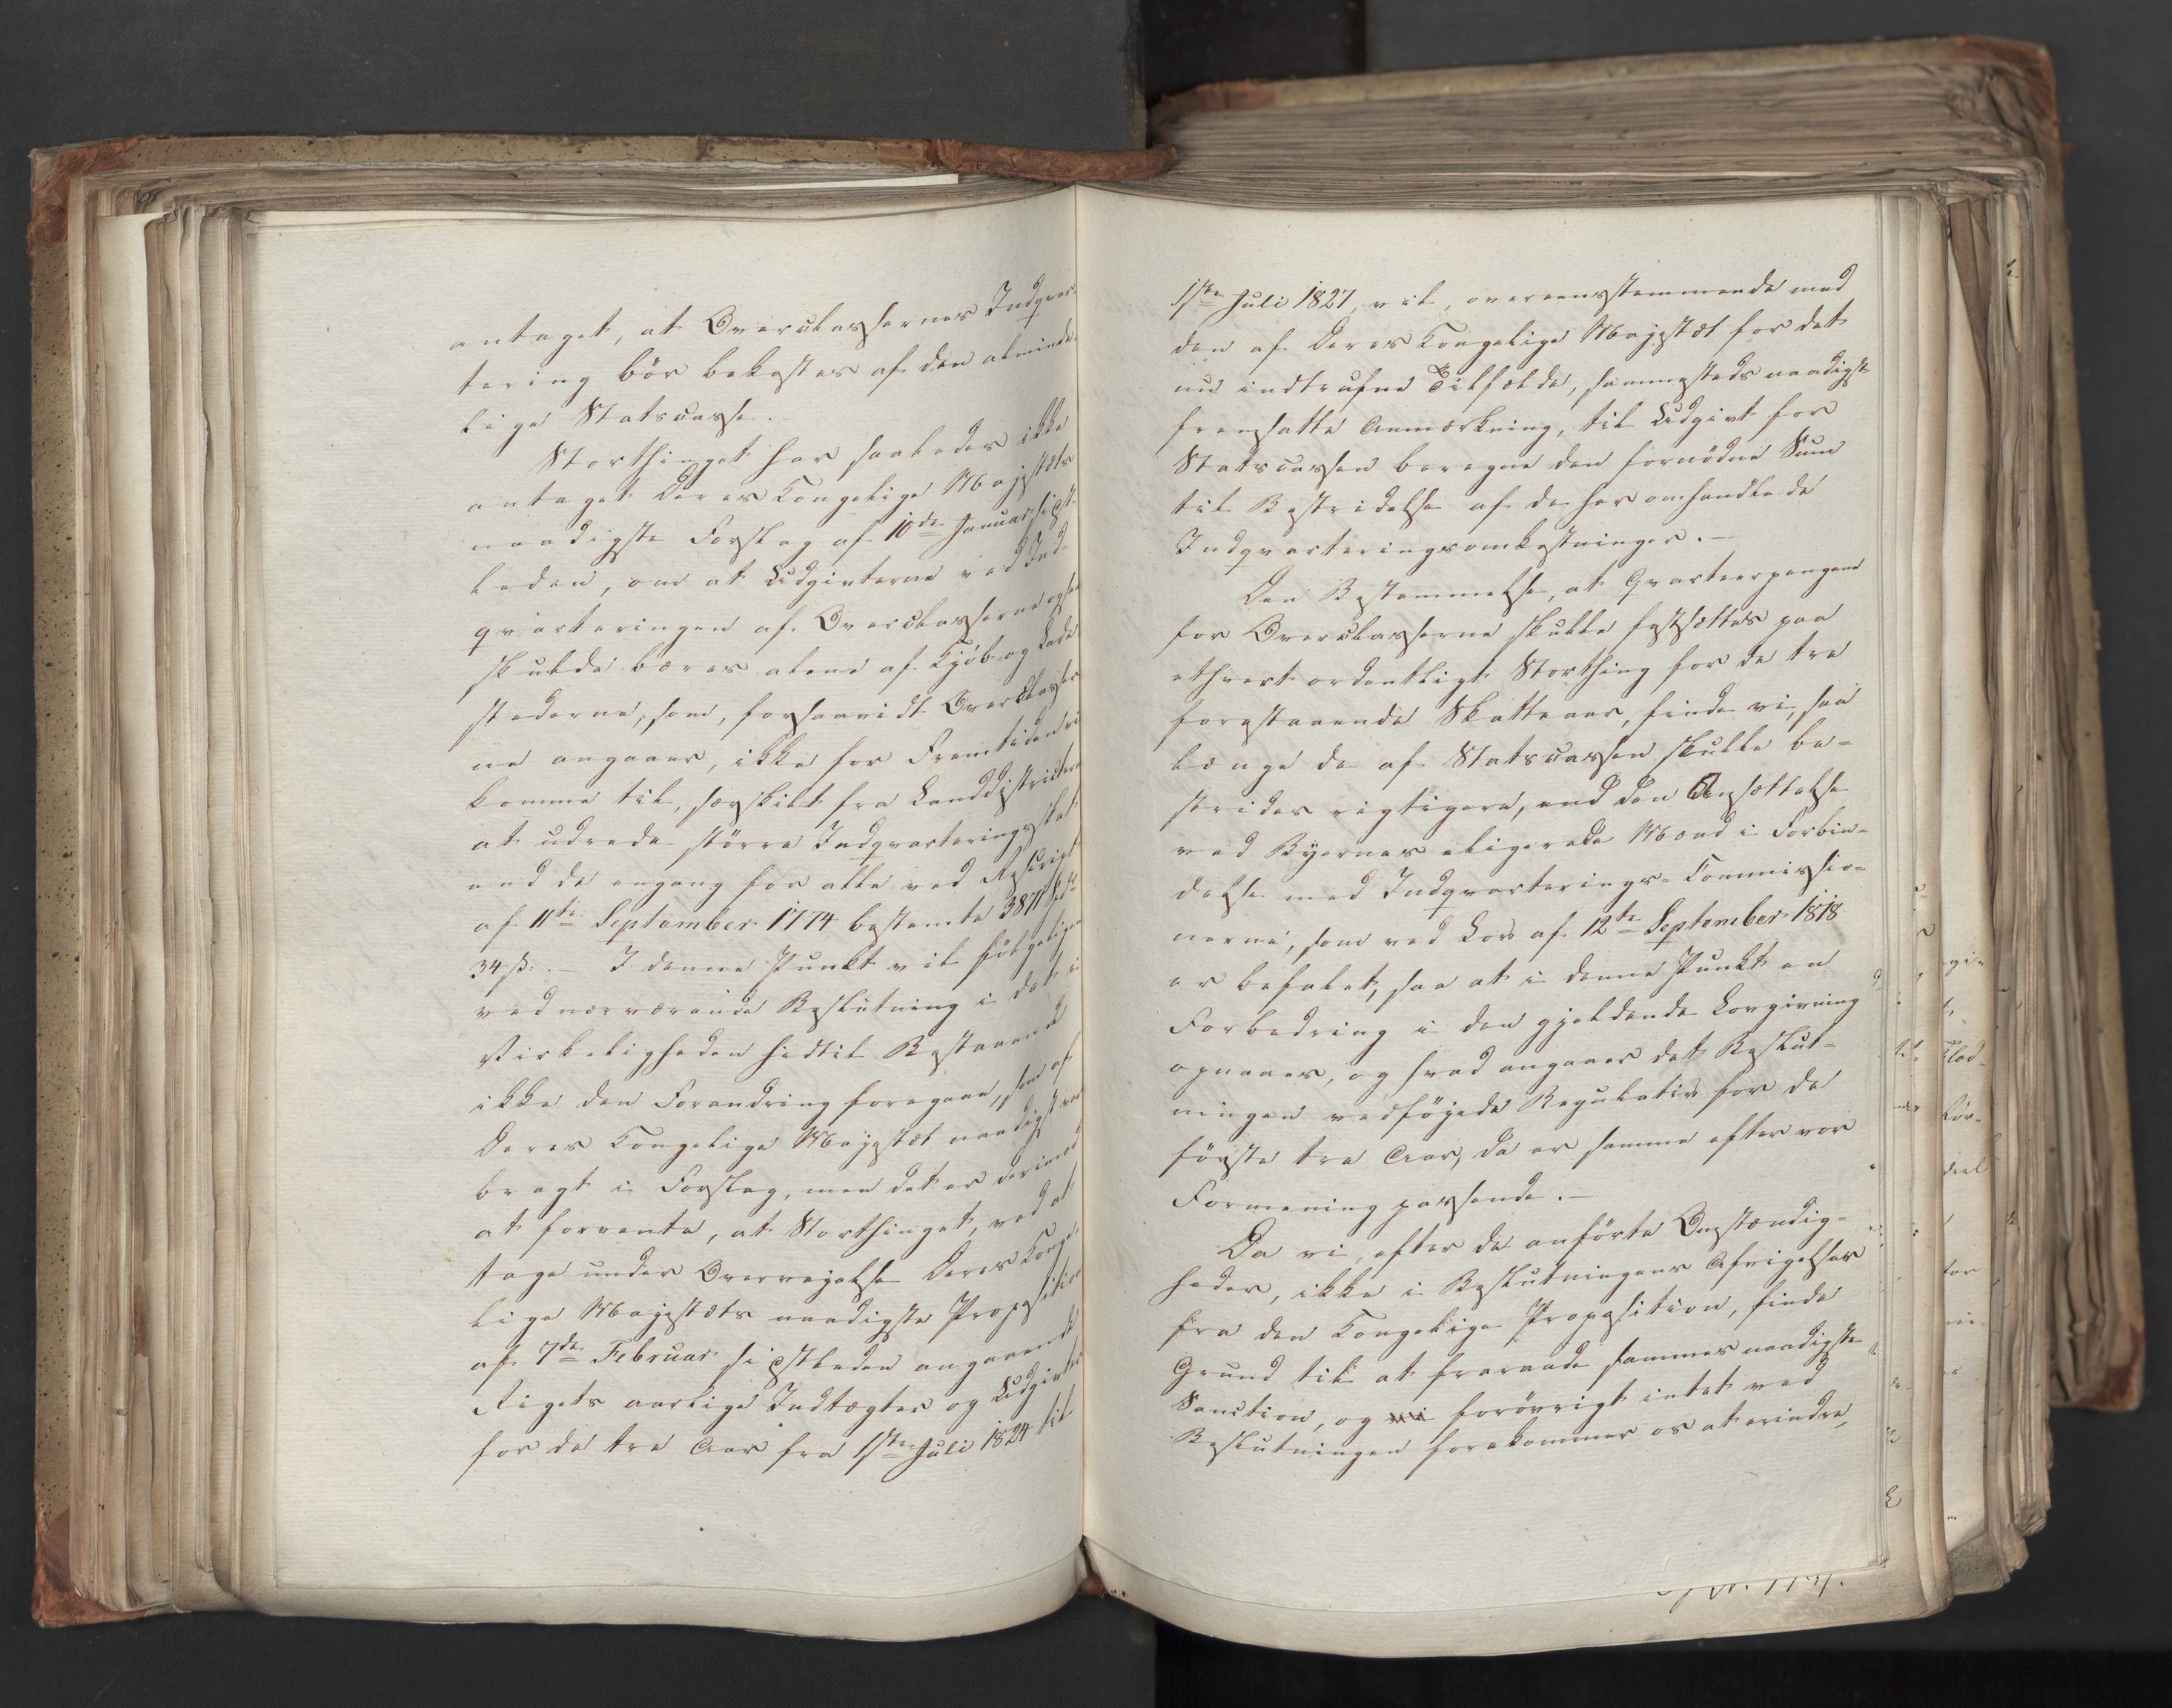 antaget, at Overclassernes Indqvar-
tering bör bekostes af den alminde-
lige Statscasse.
Storthinget har saaledes ikke
antaget Deres Kongelige Majestæts
naadigste Forslag af 10de Januar sidst-
leden, om at Udgivterne ved Ind-
qvarteringen af Overclasserne ogsaa
skulde bæres alene af Kjöb- og Lade-
stederne, som, forsaavidt Overclasser-
ne angaaer, ikke for Fremtiden vil
komme til, særskilt fra Landdistricterne
at udrede större Indqvarteringsskat
end de engang for alle ved Rescript
af 11te September 1774 bestemte 3871 Spd
34 ß. – I denne Punkt vil fölgeligen
ved nærværende Beslutning i det i
Virkeligheden hidtil Bestaaende
ikke den Forandring foregaae, som af
Deres Kongelige Majestæt naadigst var
bragt i Forslag, men det er derimod
at forvente, at Storthinget, ved at
tage under Overvejelse Deres Konge-
lige Majestæts naadigste Proposition
af 7de Februar sidstleden angaaende
Rigets aarlige Indtægter og Udgivter
for de tre Aar fra 1ste Juli 1824 til
1ste Juli 1827, vil, overeensstemmende med
den af Deres Kongelige Majestæt for det
nu indtrufne Tilfælde, sammesteds naadigst
fremsatte Anmærkning, til Udgivt for
Statscassen beregne den fornödne Sum
til Bestridelse af de her omhandlede
Indqvarteringsomkostninger. –
Den Bestemmelse, at Qvarteerpengene
for Overclasserne skulle fastsættes paa
ethvert ordentligt Storthing for de tre
forestaaende Skatteaar, finde vi, saa
længe de af Statscassen skulle be-
strides rigtigere, end den Ansættelse
ved Byernes eligerede Mænd i Forbin-
delse med Indqvarterings-Commissio-
nerne, som ved Lov af 12te September 1818
er befalet, saa at i denne Punkt en
Forbedring i den gjeldende Lovgivning
opnaaes, og hvad angaaer det Beslut-
ningen vedföjede Regulativ for de
förste tre Aar, da er samme efter vor
Formening passende. –
Da vi, efter de anförte Omstændig-
heder, ikke i Beslutningens Afvigelser
fra den Kongelige Proposition, finde
Grund til at fraraade sammes naadigste
Sanction, og forövrigt intet ved
Beslutningen forekommer os at erindre,